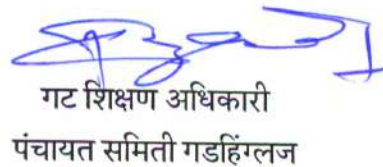 गट शिक्षण अधिकारी
पंचायत समिती गडहिंग्लज